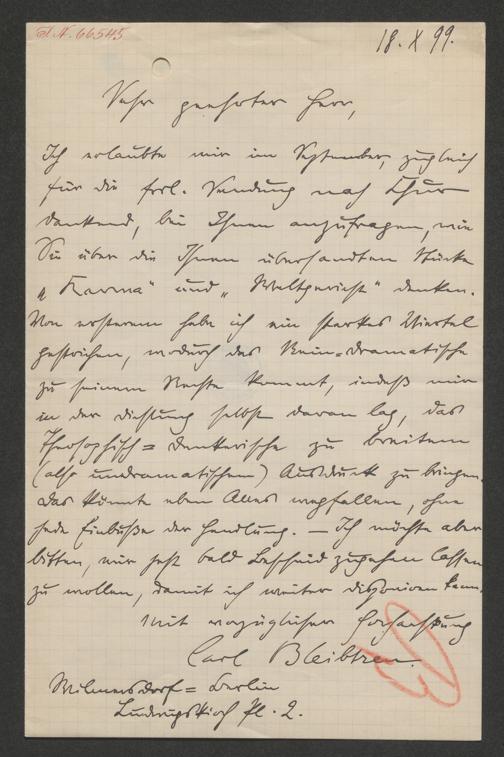 J. N. 66545
18. X 99.
Sehr geehrter Herr,
Ich erlaubte mir im September, zugleich
für die frdl. Sendung nach Chur
dankend, bei Ihnen anzufragen, wie
Sie über die Ihnen übersandten Stücke
„Karma" und „Weltgericht" denken.
Von ersterem habe ich ein starkes Viertel
gestrichen, wodurch das Rein-dramatische
zu seinem Rechte kommt, indeß mir
in der Dichtung selbst daran lag, das
Theosophisch=denkerische zu breitem
(also undramatischem) Ausdruck zu bringen.
Das könnte eben Alles wegfallen, ohne
jede Einbuße der Handlung. — Ich möchte aber
bitten, mir jetzt bald Bescheid zugehen lassen
zu wollen, damit ich weiter disponiren kann.
Mit vorzüglicher Hochachtung
Carl Bleibtreu.
Wilmersdorf=Berlin
Ludwigskirch Pl. 2.